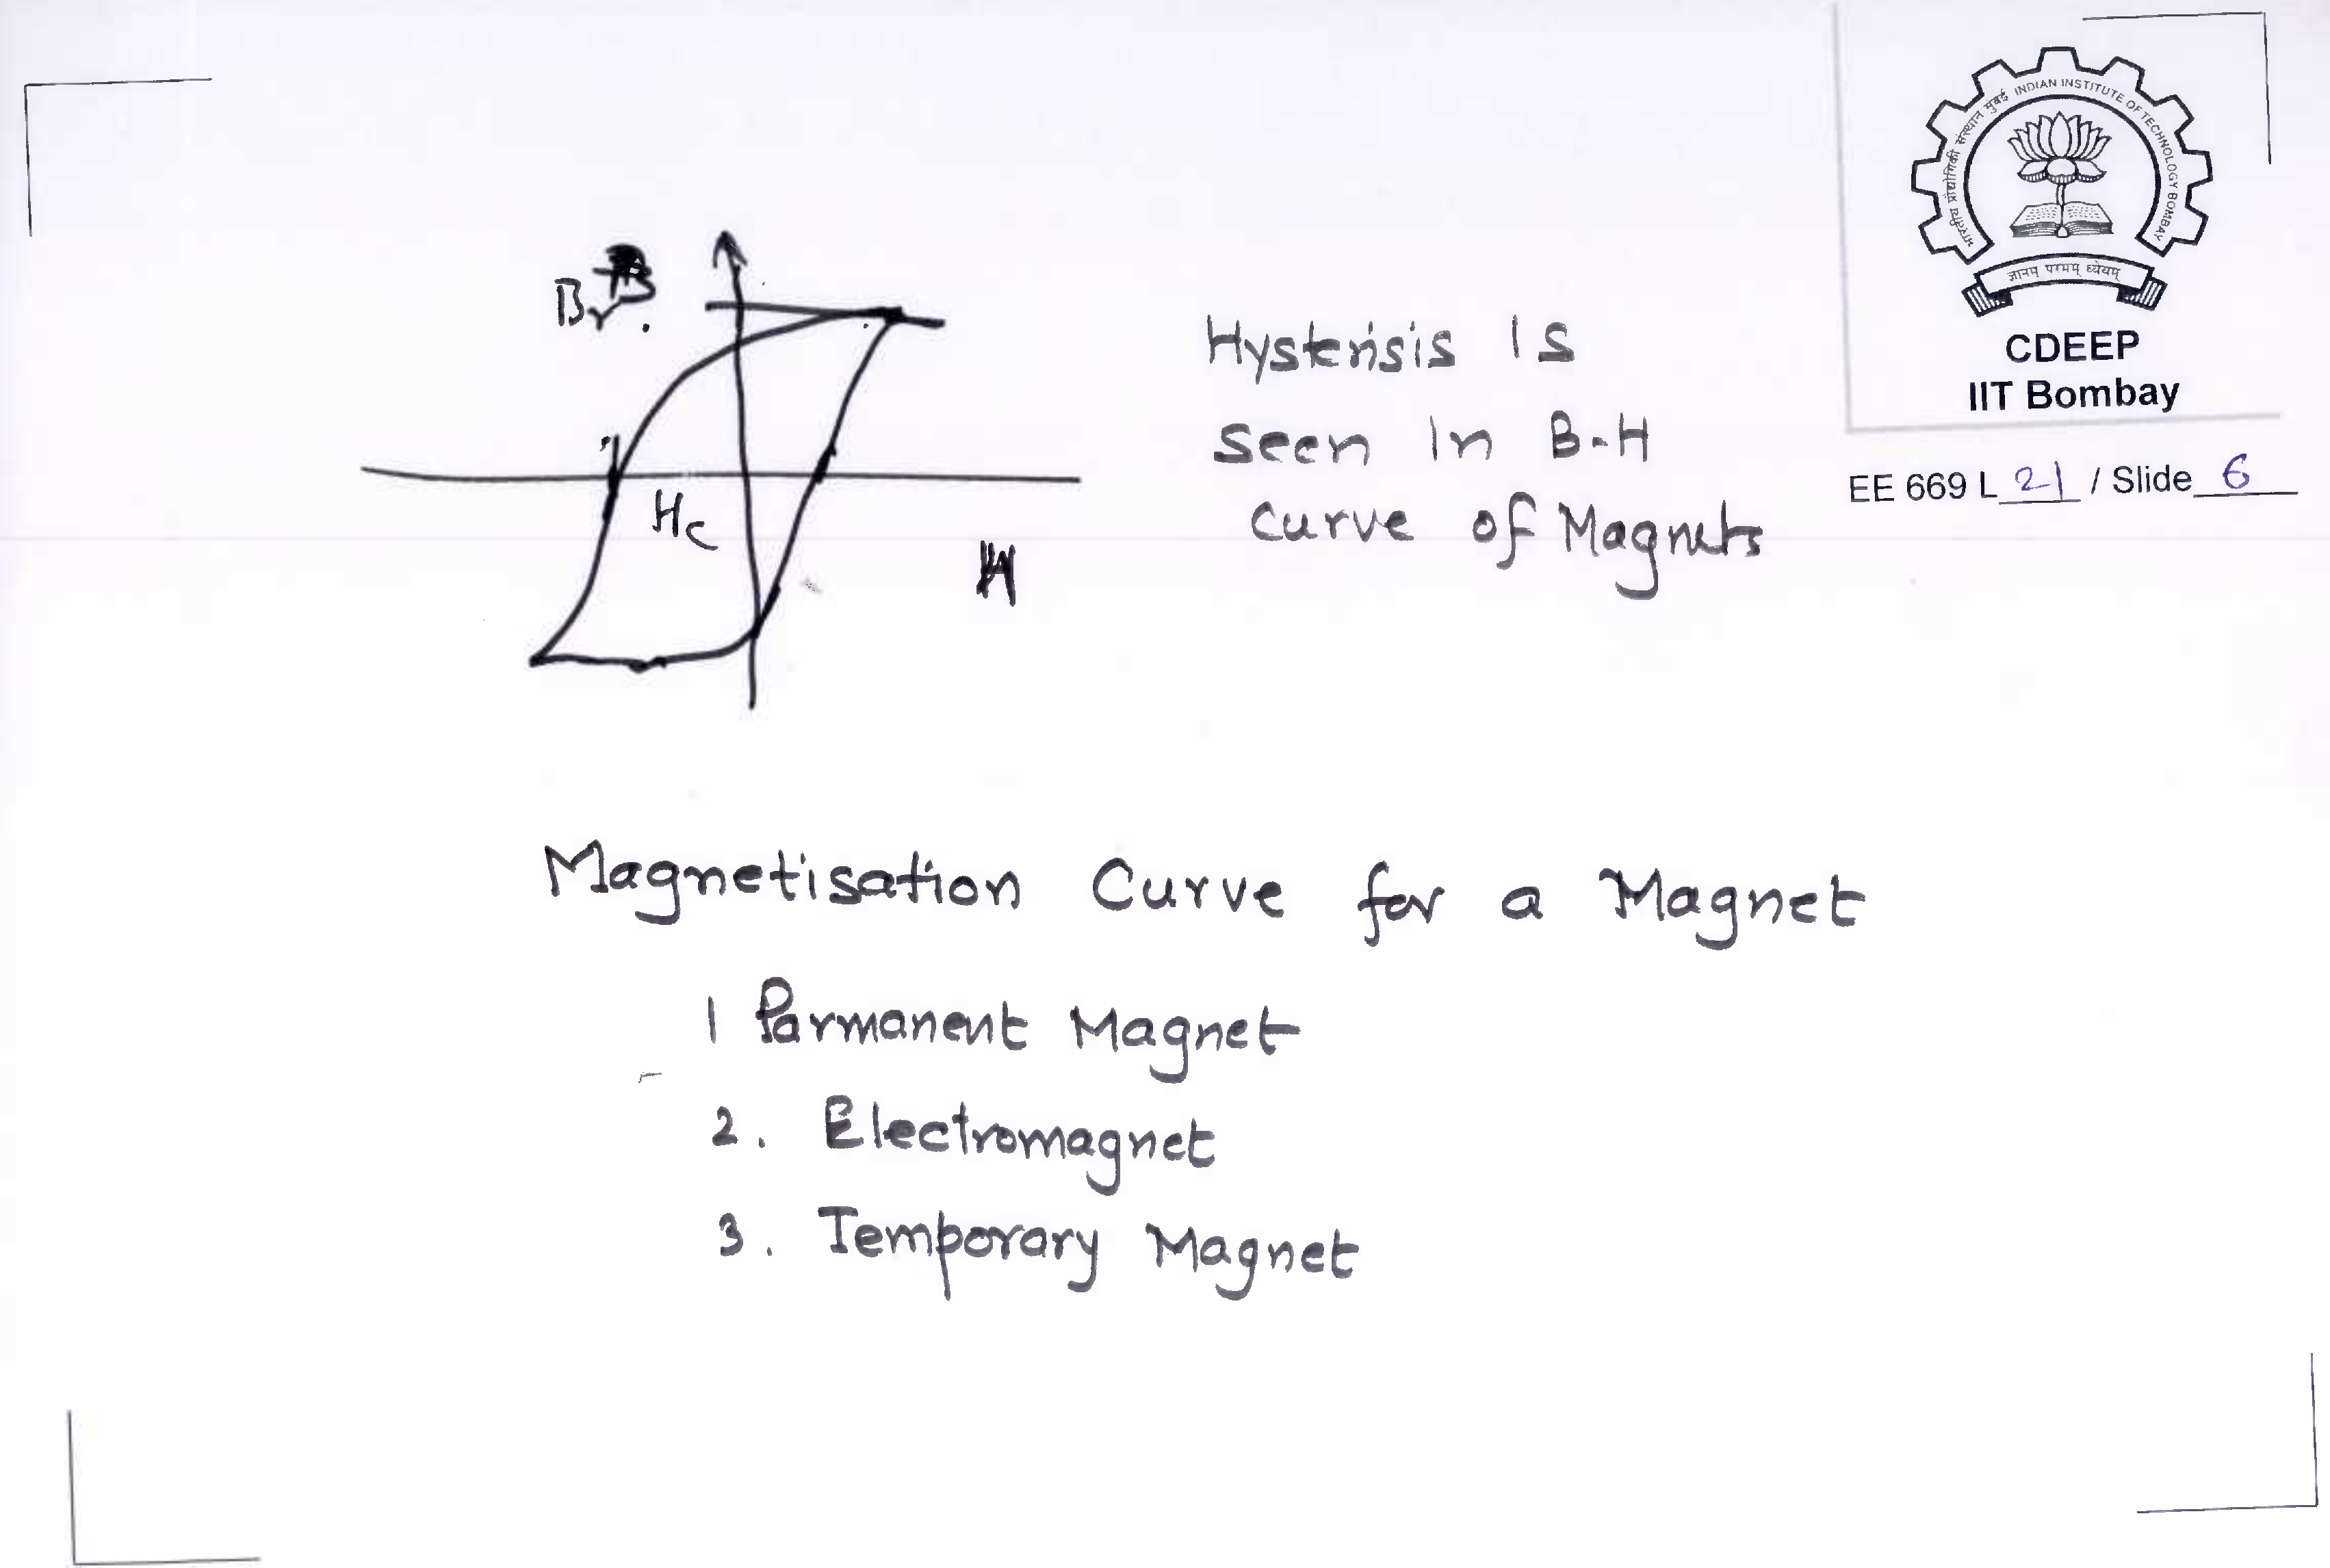 भारतीय प्रौद्योगिकी संस्थान मुंबई INDIAN INSTITUTE OF TECHNOLOGY BOMBAY
ज्ञानम् परमम् ध्येयम्
CDEEP
IIT Bombay
EE 669 L 21 / Slide 6
Br B
Hc
H
Hysterisis Is
seen In B-H
curve of Magnets
Magnetisation Curve for a Magnet
1 Parmanent Magnet
2. Electromagnet
3. Temporary Magnet